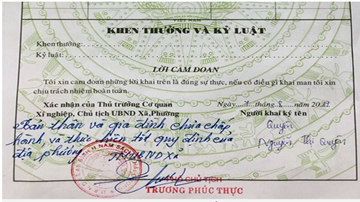 KHEN THƯỞNG VÀ KỶ LUẬT
Khen thưởng:
Kỷ luật:
LỜI CAM ĐOAN
Tôi xin cam đoan những lời khai trên là đúng sự thực, nếu có điều gì khai man tôi xin
chịu trách nhiệm hoàn toàn.
Xác nhận của Thủ trưởng Cơ quan
Xí nghiệp, Chủ tịch UBND Xã, Phường
Ngày tháng 8 năm
Người khai ký tên
Bản thân và gia đình chưa chấp
hành, và thực hiện tốt quy định của
địa phương.
TM UBND Xã
Quyên
Nguyễn Thị Quyên
CHỦ TỊCH
TRƯƠNG PHÚC THỰC